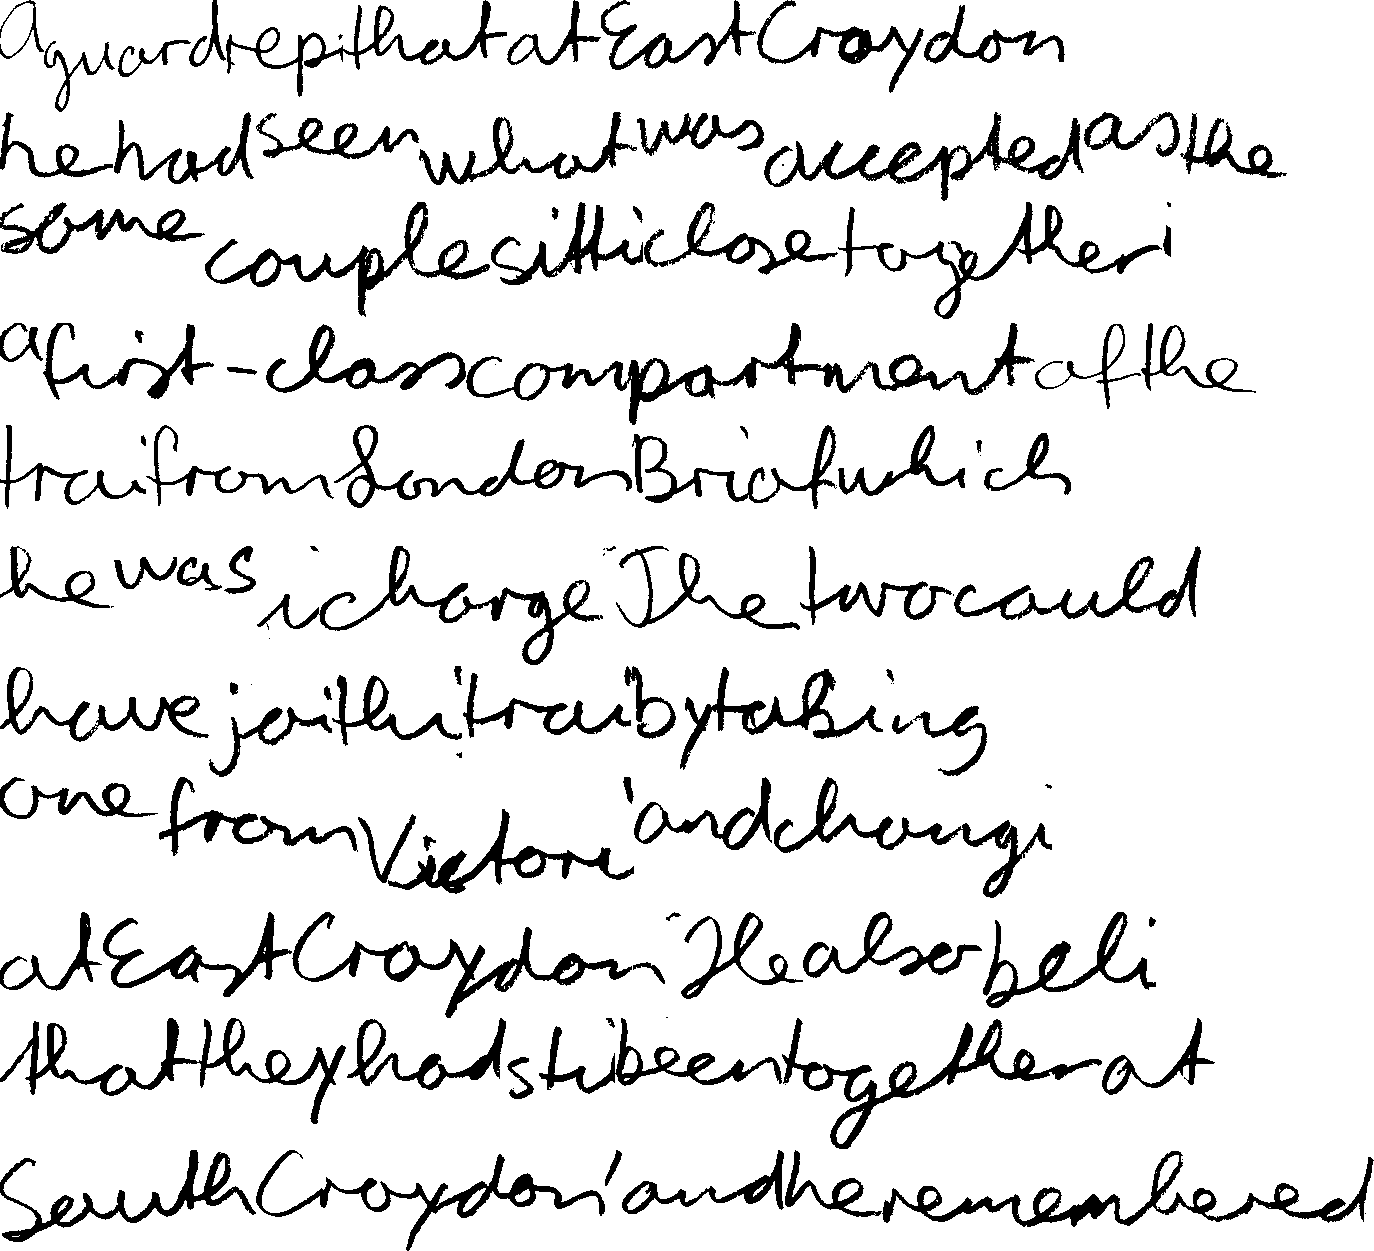 A guard repi that at East Croydon
he had seen what was accepted as the
same couple sitti close together i
a first-class compartment of the
trai from London Bri of which
he was i charge The two could
have joi thi trai by taking
one from Victori and changi
at East Croydon He also beli
that they had sti been together at
South Croydon and he remembered